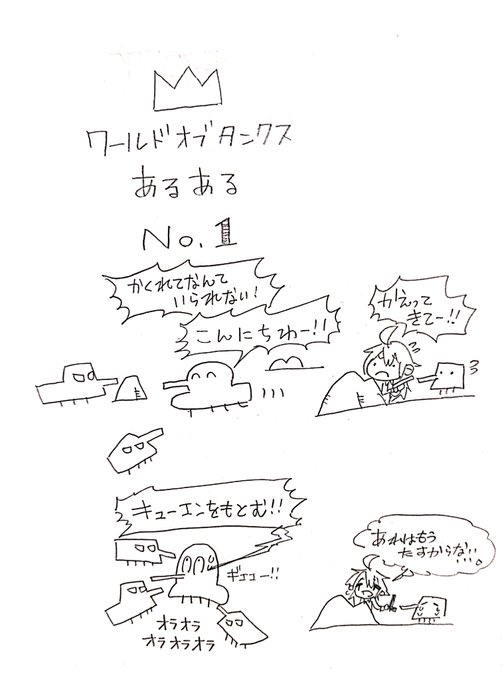 ワールドオブタンクス
あるある
No.1
かくれてなんて
いられない!
こんにちわー!!
かえって
きてー!!
キューエンをもとむ!!
ギエエー!!
オラオラ
オラオラオラ
あれはもう
たすからな!!!。